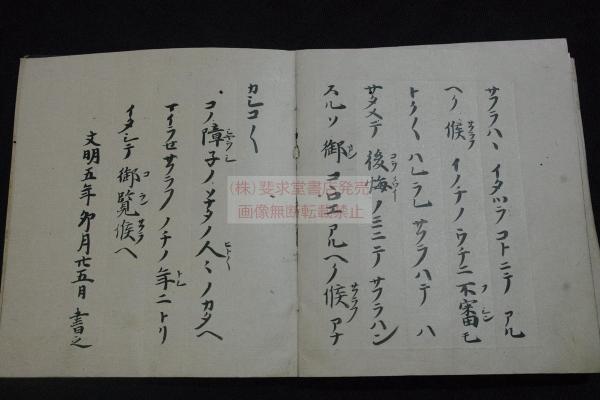 サフラハヽ イタツラコトニテ アル
ヘク候 イノチノウチニ 不審モ
トク〱 ハレラレ サフラハテ ハ
サタメテ 後悔ノミニテ サフラハン
スルソ 御コヽロエアルヘク候 アナ
カシコ〱
コノ障子ノソナタノ人〻ノカタヘ
マイラセサフラフ ノチノ年ニトリ
イタシテ 御覧候ヘ
文明五年 卯月廿五日 書之
(株)斐求堂書店発売
画像無断転載禁止